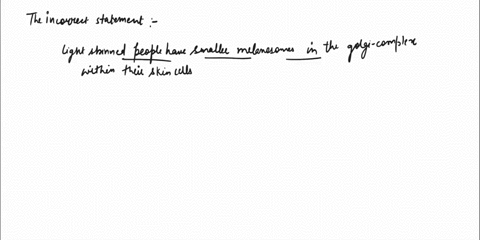 The incorrect statement :-
Light skinned people have smaller melanosomes in the golgi-complex
within their skin cells